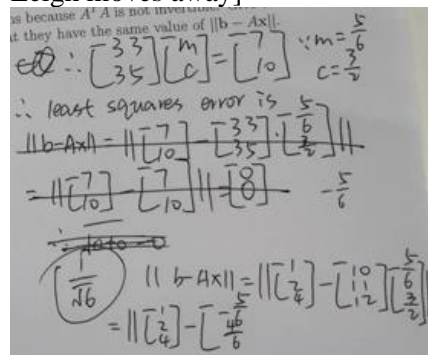 Leigh moves away]
ns because A^T A is not inver
t they have the same value of ||b − Ax||.
∴ [3 3 3 5] [m c] = [7 10] ∵ m = 5/6 c = 3/2
∴ least squares error is
||b-Ax|| = ||[7 10] - [3 3 3 5] · [5/6 3/2]||
= ||[7 10] - [7 10]|| = [0 0] - 5/6
1/√6 || b-Ax|| = ||[1 2 4] - [1 0 1 1 1 2] [5/6 3/2]
= ||[1 2 4] - [